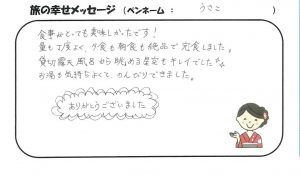 旅の幸せメッセージ (ペンネーム : うさこ )
食事がとっても美味しかったです!
量も丁度よく、夕食も朝食も絶品で完食しました。
貸切露天風呂から眺める星空もキレイでしたな
お湯も気持ちよくて、のんびりできました。
ありがとうございました